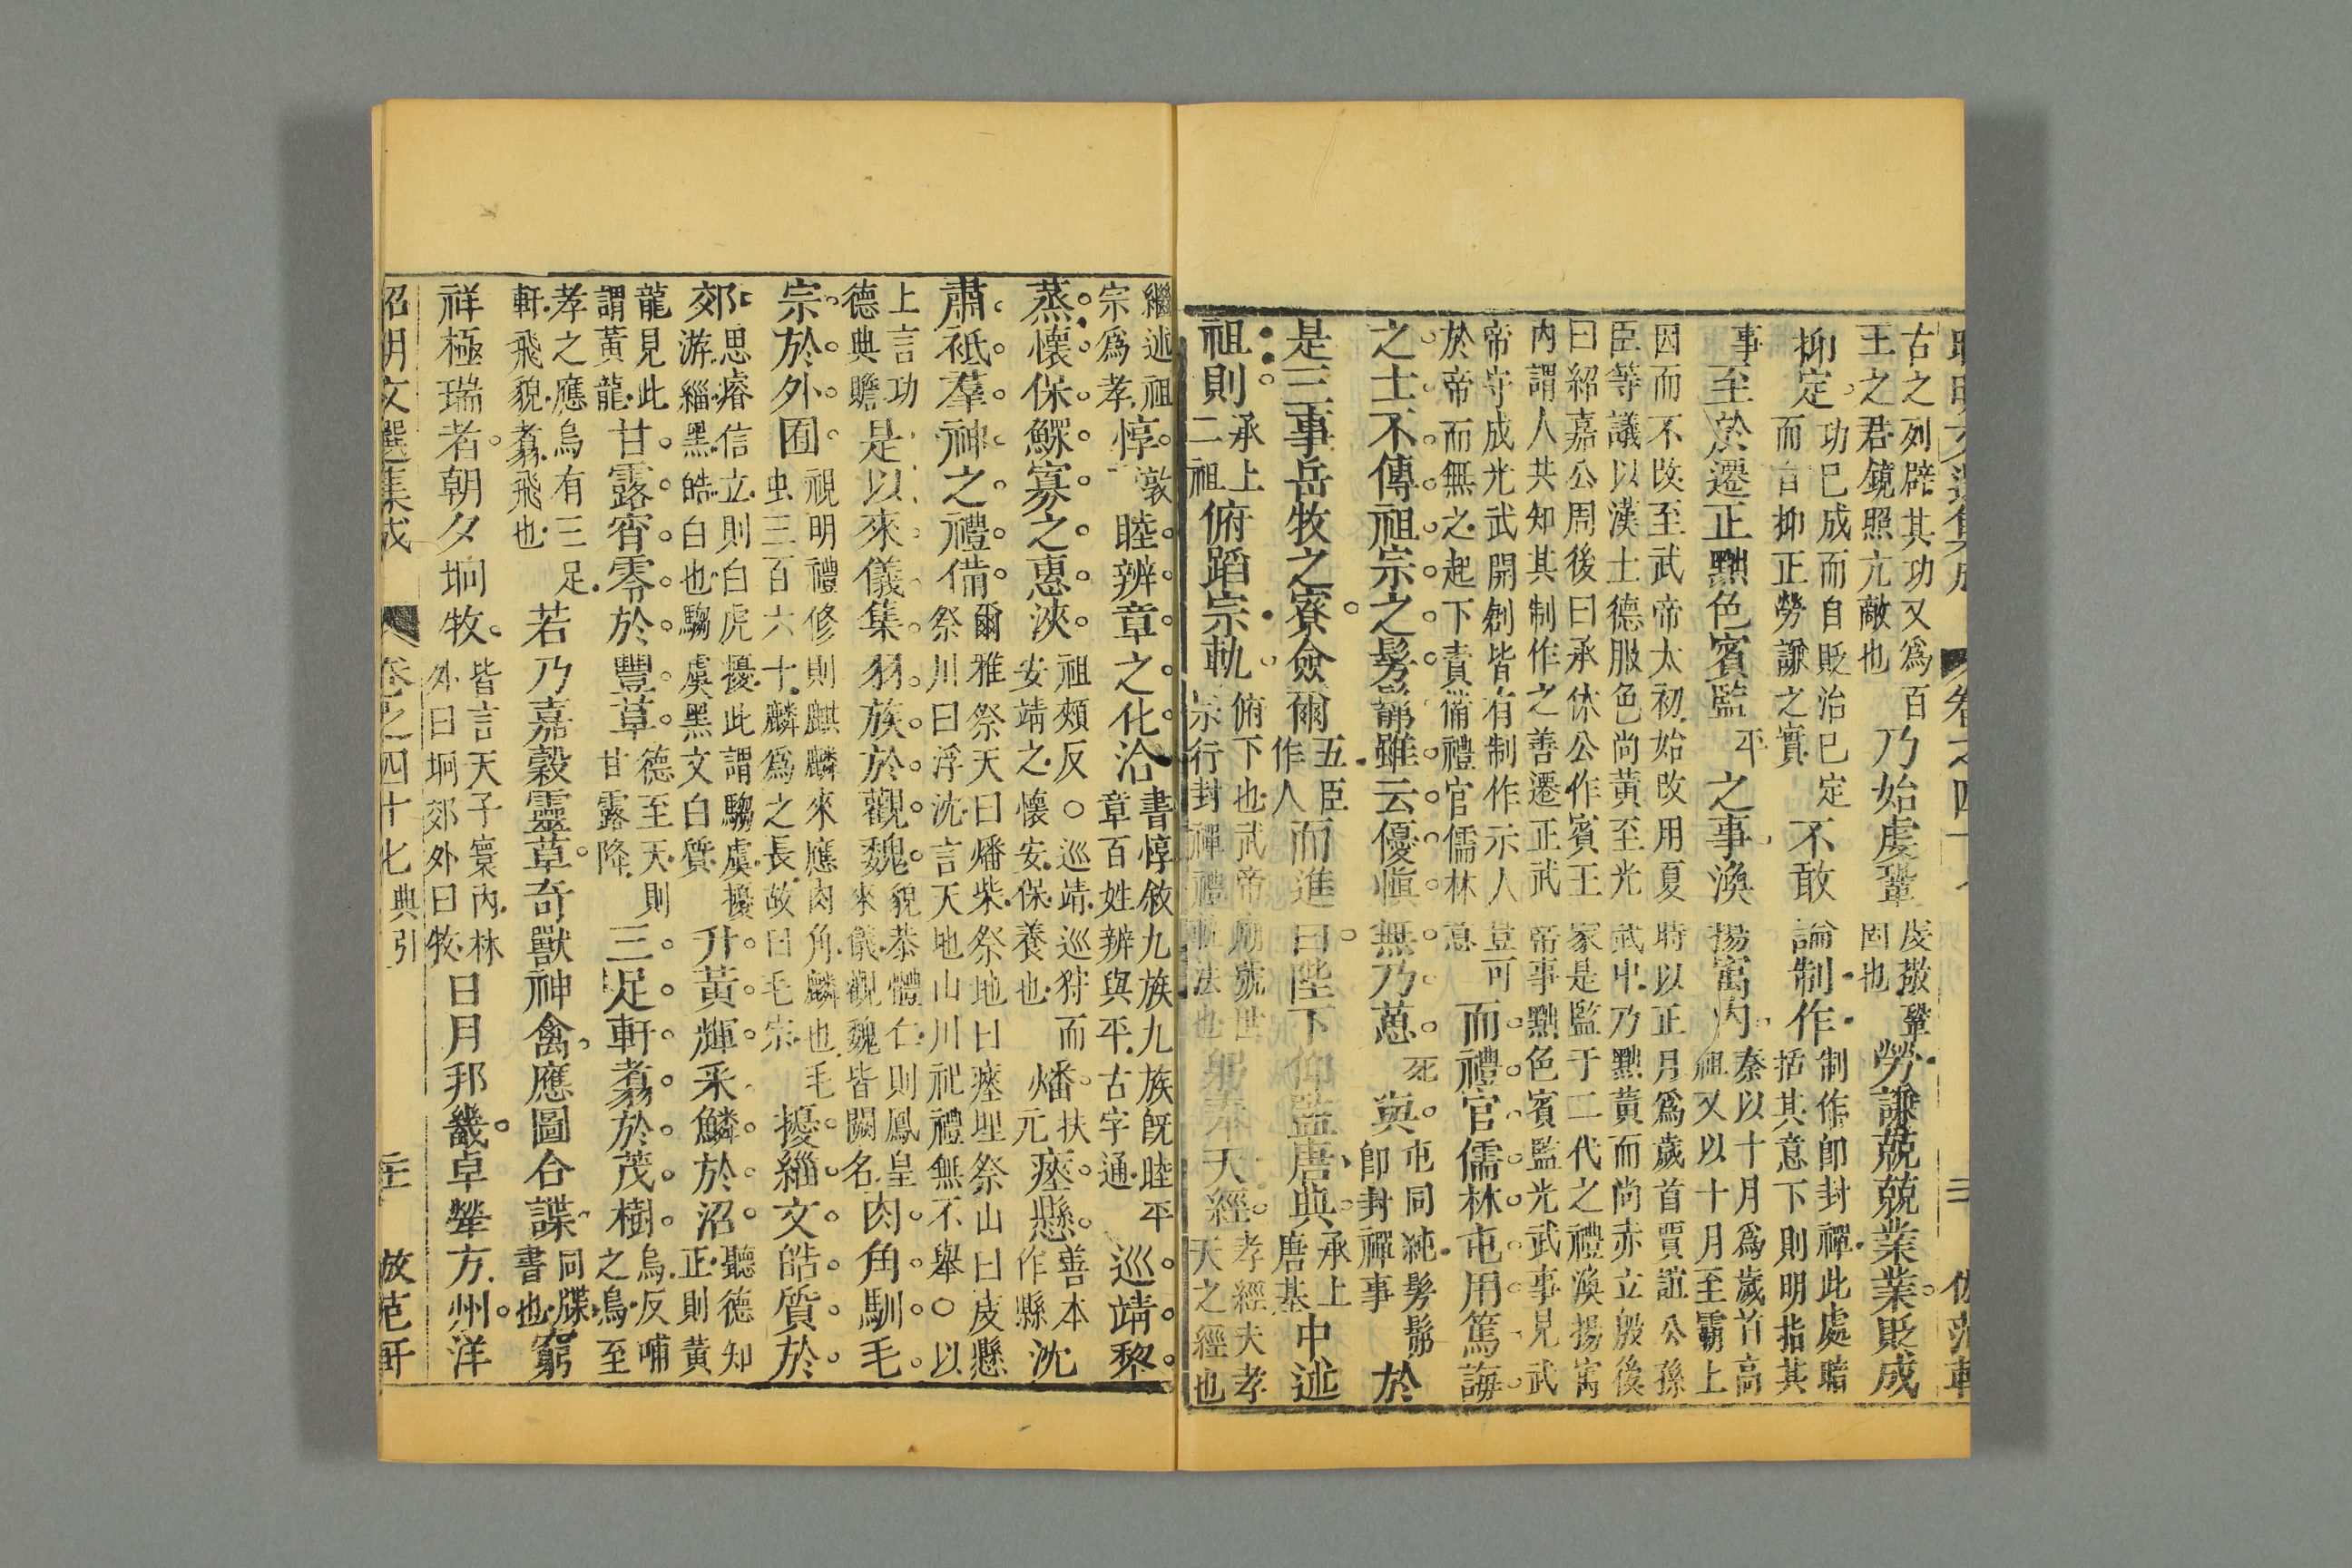 昭明文選集成 卷之四十七
古之列辟其功又爲百
王之君鏡照亢敵也
乃始虔鞏
虔敬鞏
固也
勞謙兢兢業業貶成
抑定
功已成而自貶治已定
而自抑正勞謙之實
不敢論制作
制作卽封禪此處暗
括其意下則明指其
事
至於遷正黜色賓監
平
之事渙揚寓内
秦以十月爲歲首高
祖又以十月至霸上
因而不改至武帝太初始改用夏時以正月爲歲首賈誼公孫
臣等議以漢土德服色尚黃至光武中乃黜黃而尚赤立殷後
曰紹嘉公周後曰承休公作賓王家是監于二代之禮渙揚寓
内謂人共知其制作之善遷正武帝事黜色賓監光武事見武
帝守成光武開創皆有制作示人豈可
於帝而無之起下責備禮官儒林意
而禮官儒林屯用篤誨
之士不傳祖宗之髣髴雖云優愼無乃葸
死
與
屯同純髣髴
卽封禪事
於
是三事岳牧之寮僉爾
五臣
作人
而進曰陛下仰監唐典
承上
唐基
中述
祖則
承上
二祖
俯蹈宗軌
俯下也武帝廟號世
宗行封禪禮軌法也
躬奉天經
孝經夫孝
天之經也
繼述祖
宗爲孝
惇
敦
睦辨章之化洽
書惇敘九族九族旣睦平
章百姓辨與平古字通
巡靖黎
蒸懷保鰥寡之惠浹
祖頰反〇巡靖巡狩而
安靖之懷安保養也
燔
扶
元
瘞懸
善本
作縣
沈
肅祗羣神之禮俻
爾雅祭天曰燔柴祭地曰瘞埋祭山曰庋懸
祭川曰浮沈言天地山川祀禮無不舉〇以
上言功
德典贍
是以來儀集羽族於觀魏
貌恭體仁則鳳皇
來儀觀魏皆闕名
肉角馴毛
宗於外囿
視明禮修則麒麟來應肉角麟也毛
虫三百六十麟爲之長故曰毛宗
擾緇文皓質於
郊
思睿信立則白虎擾此謂騶虞擾
游緇黑皓白也騶虞黑文白質
升黃輝采鱗於沼
聽德知
正則黃
龍見此
謂黃龍
甘露宵零於豐草
德至天則
甘露降
三足軒翥於茂樹
烏反哺
之鳥至
孝之應烏有三足
軒飛貌翥飛也
若乃嘉榖靈草奇獸神禽應圖合諜
同牒
書也
窮
祥極瑞者朝夕坰牧
皆言天子寰内林
外曰坰郊外曰牧
日月邦畿卓犖方州洋
昭明文選集成 卷之四十七典引